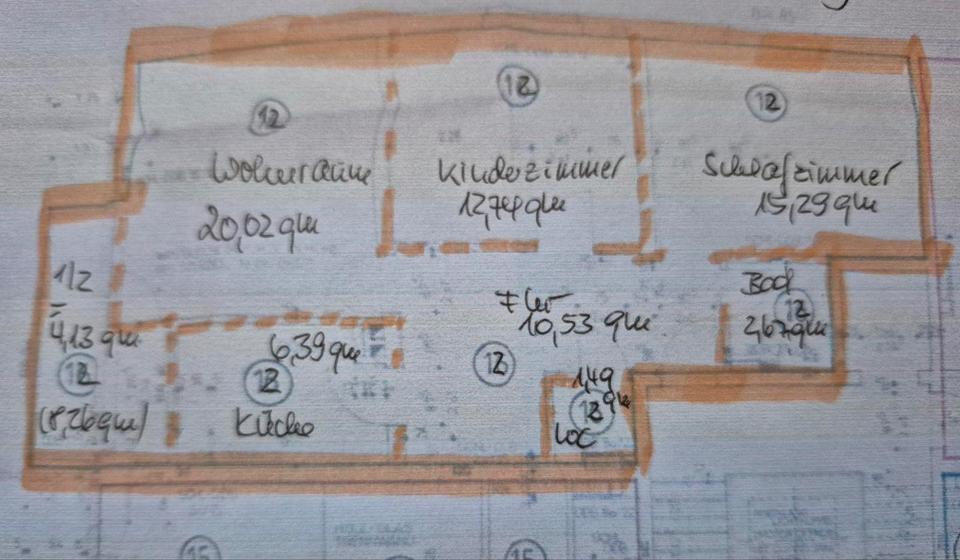 12
Wohnraum
20,02 qm
12
Kinderzimmer
12,74 qm
12
Schlafzimmer
15,29 qm
1/2
4,13 qm
12
(8,26 qm)
6,39 qm
12
Küche
Flur
10,53 qm
12
Bad
12
2,67 qm
1,49
qm
12
WC
15
15